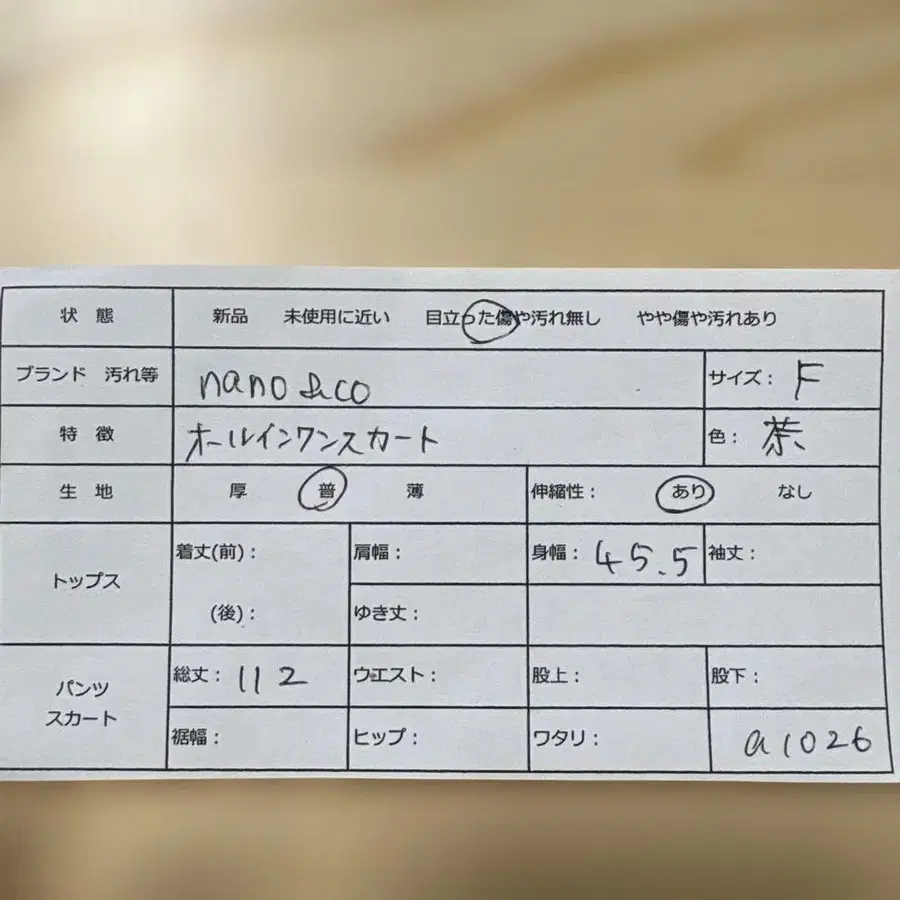 状 態 新品 未使用に近い 目立った傷や汚れ無し やや傷や汚れあり
ブランド 汚れ等 nano &co サイズ： F
特 徴 オールインワンスカート 色： 茶
生 地 厚 普 薄 伸縮性： あり なし
トップス 着丈(前)： 肩幅： 身幅： 45.5 袖丈：
(後)： ゆき丈：
パンツ スカート 総丈： 112 ウエスト： 股上： 股下：
裾幅： ヒップ： ワタリ： a1026